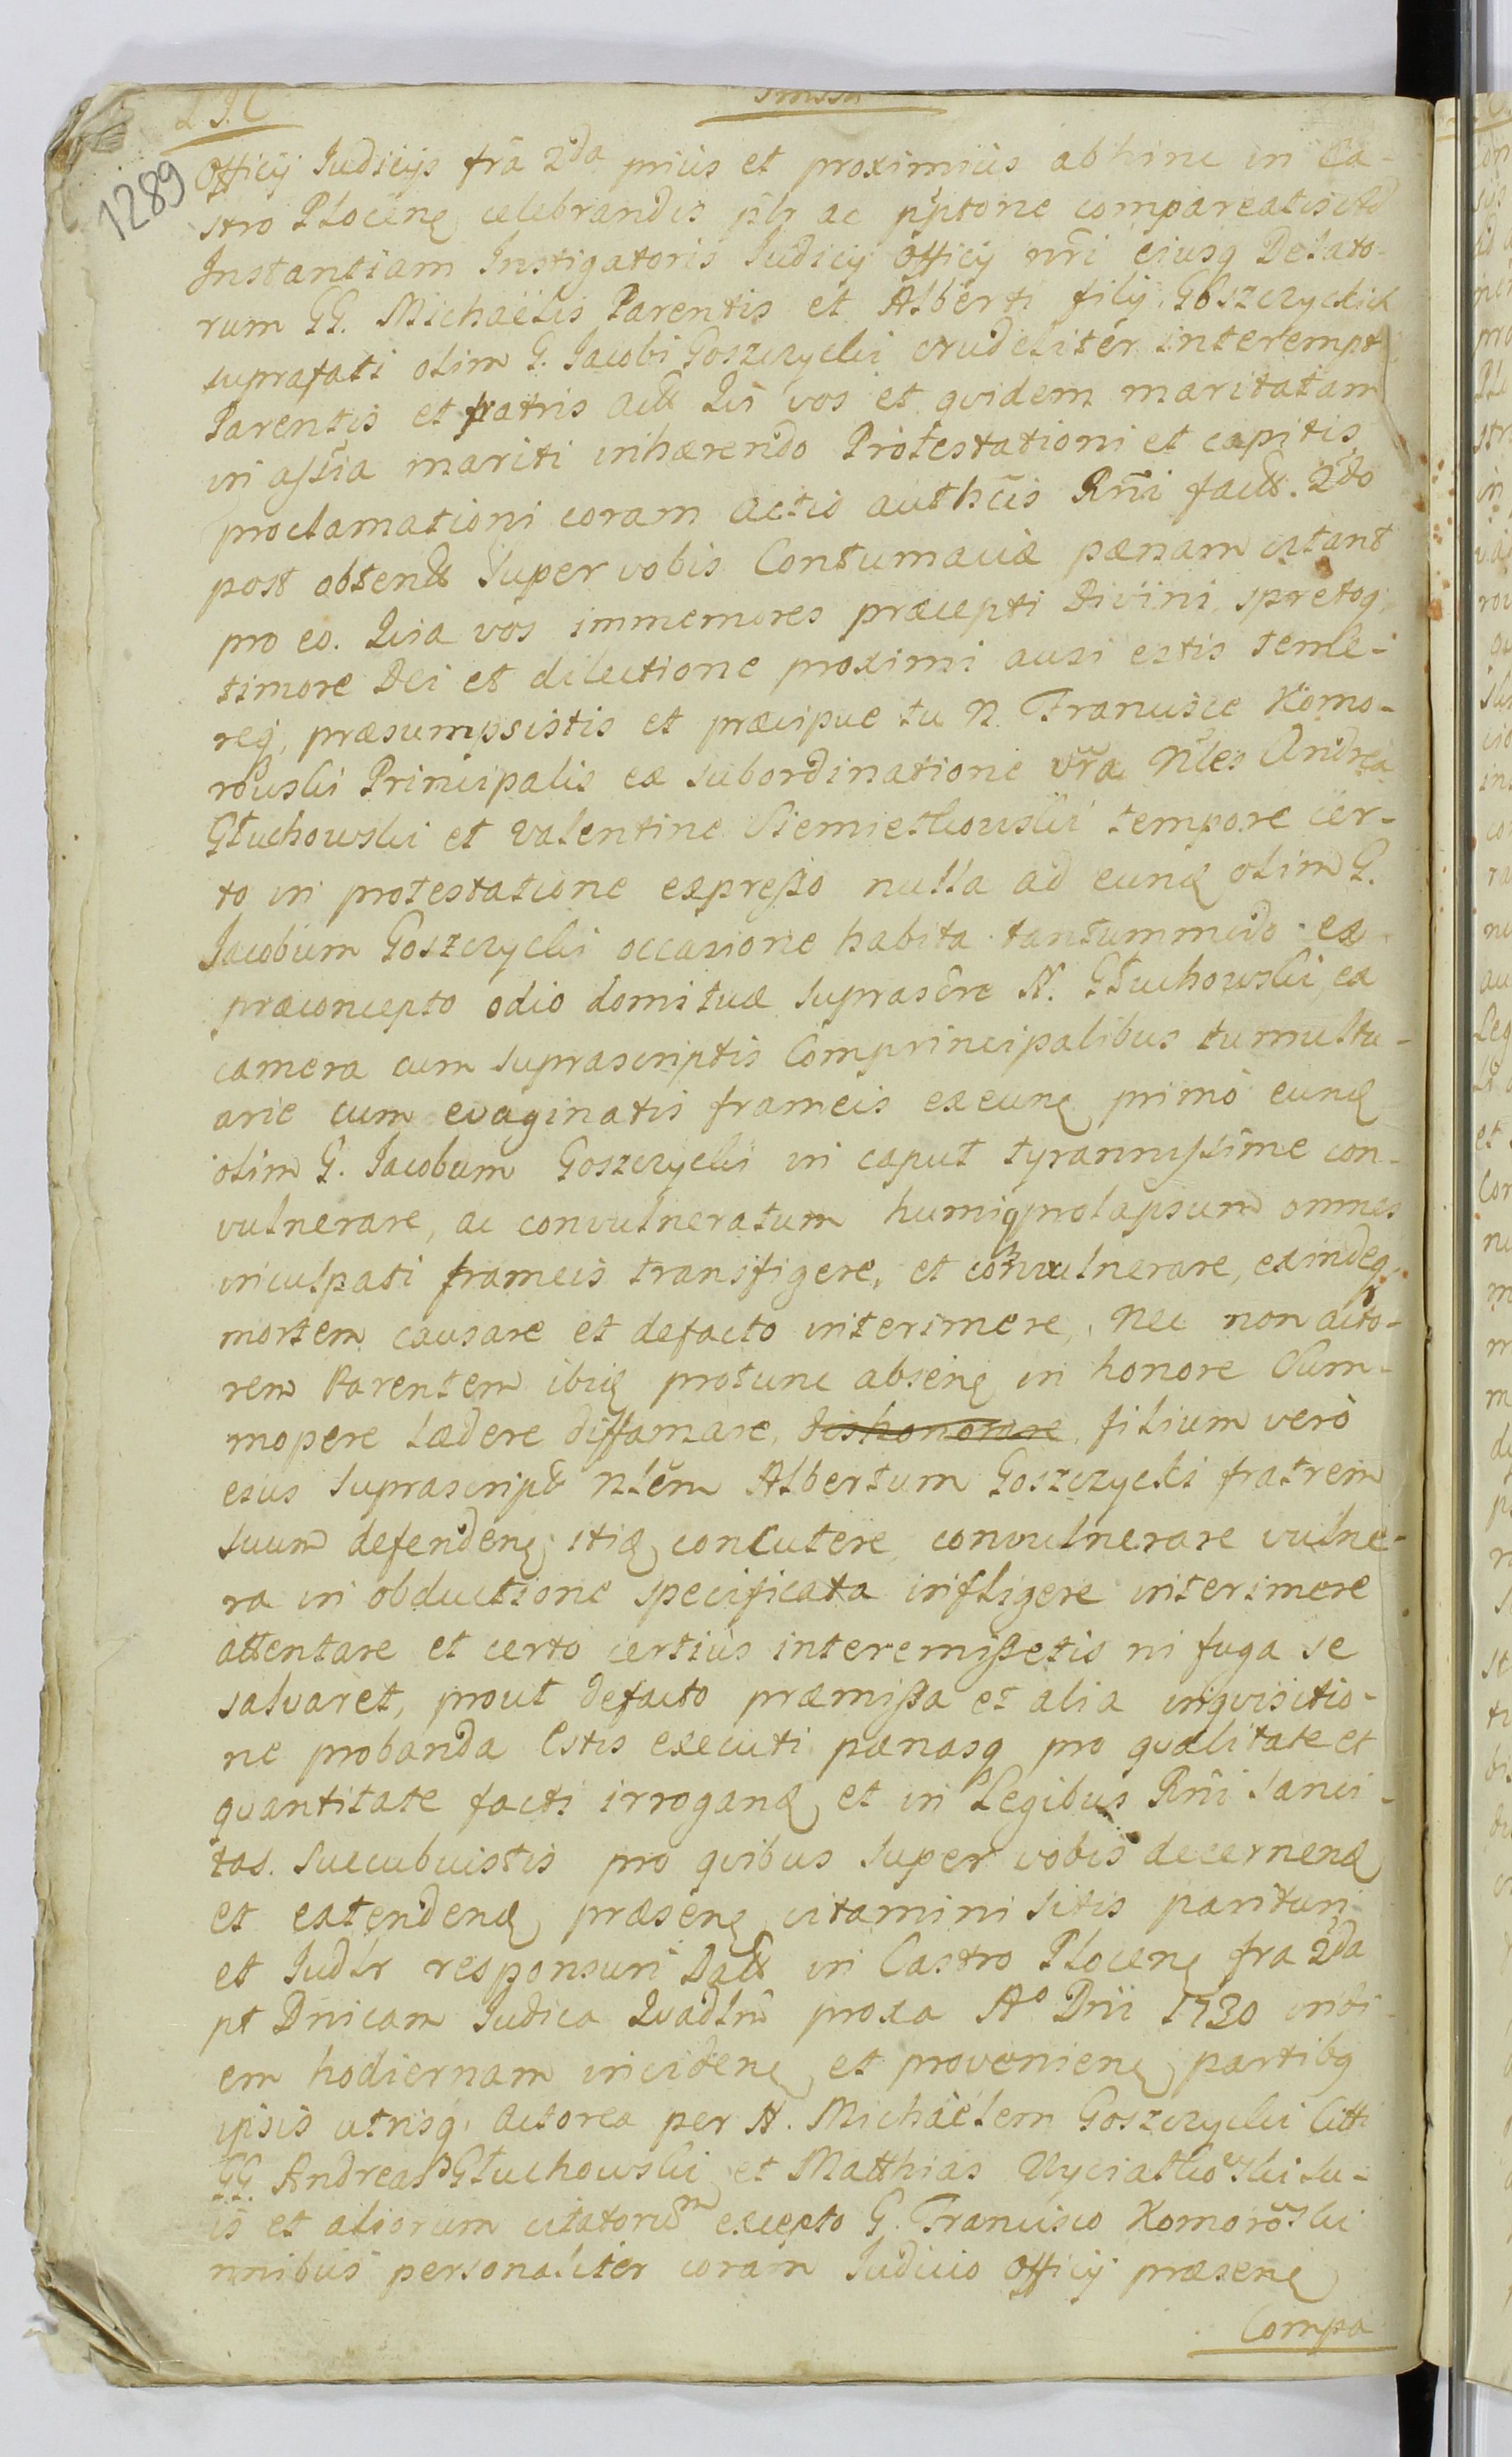 1289
Officij Judicijs fra 2da prius et proximius abhinc in Ca-
stro Plocenę celebrandis plr ac pptorie compareatis Ad
Instantiam Instigatoris Judicij Officij nri eiusq Delato-
rum GG. Michaëlis Parentis et Alberti filij Goszczyckich
suprafati olim G. Jacobi Goszczycki crudelitér interempt
Parentis et fratris act Qui vos et quidem maritatam
in assia mariti inhærendo Protestationi et capitis
proclamationi coram actis authcis Rni fact. 2do
post obtent super vobis Contumaciæ pænam citant
pro eo. Quia vos immemores præcepti Divini, spretoq
timore Dei et dilectione proximi ausi estis teme-
req, præsumpsistis et præcipue tu N. Francisce Komo-
rowski Principalis ex subordinatione vra Nles Andrea
Głuchowski et Valentine Siemiethowski tempore cer-
to in protestatione expreßo nulla ad eunđ olim G.
Jacobum Goszczycki occasione habita tantummodo ex
præconcepto odio domi tuæ suprascre N. Głuchowski, ex
camera cum suprascriptis Comprincipalibus tumultu-
arie cum evaginatis frameis exeunę primò eunđ
olim G. Jacobum Goszczycki in caput tyrannissime con-
vulnerare, ac convulneratum humiq prolapsum omnes
inculpati frameis transfigere, et convulnerare, exindeq
mortem causare et defacto interimere, Nec non acto-
rem Parentem ibiđ protunc absenę in honore Sum-
mopere lædere diffamare, dishonorare, filium verò
eius suprascript Nlem Albertum Goszczycki fratrem
suum defendenę itiđ concutere convulnerare vulne-
ra in obductione specificata infligere interimere
attentare et certo certiùs interemißetis ni fuga se
salvaret, prout defacto præmißa et alia inquisitio-
ne probanda Estis executi pænasq pro qualitate et
quantitate facti irroganđ et in Legibus Rni sanci-
tas. Succubuistis pro quibus super vobis decernenđ
et extendenđ præsenę citamini sitis parituri
et Judlr responsuri Datt in Castro Plocenę fra 2da
pt Dnicam Judica Quadlm proxa Ao Dni 1730 in di-
em hodiernam incidenę et provenienę partibq
ipsis utrisq. Actorea per N. Michaëlem Goszczycki Citti
GG. Andreas Głuchowski et Matthias Nyciatkowski su-
is et aliorum citatorum excepto G. Francisco Komorowski
mnibus personaliter coram Judicio Officij præsenę
Compa